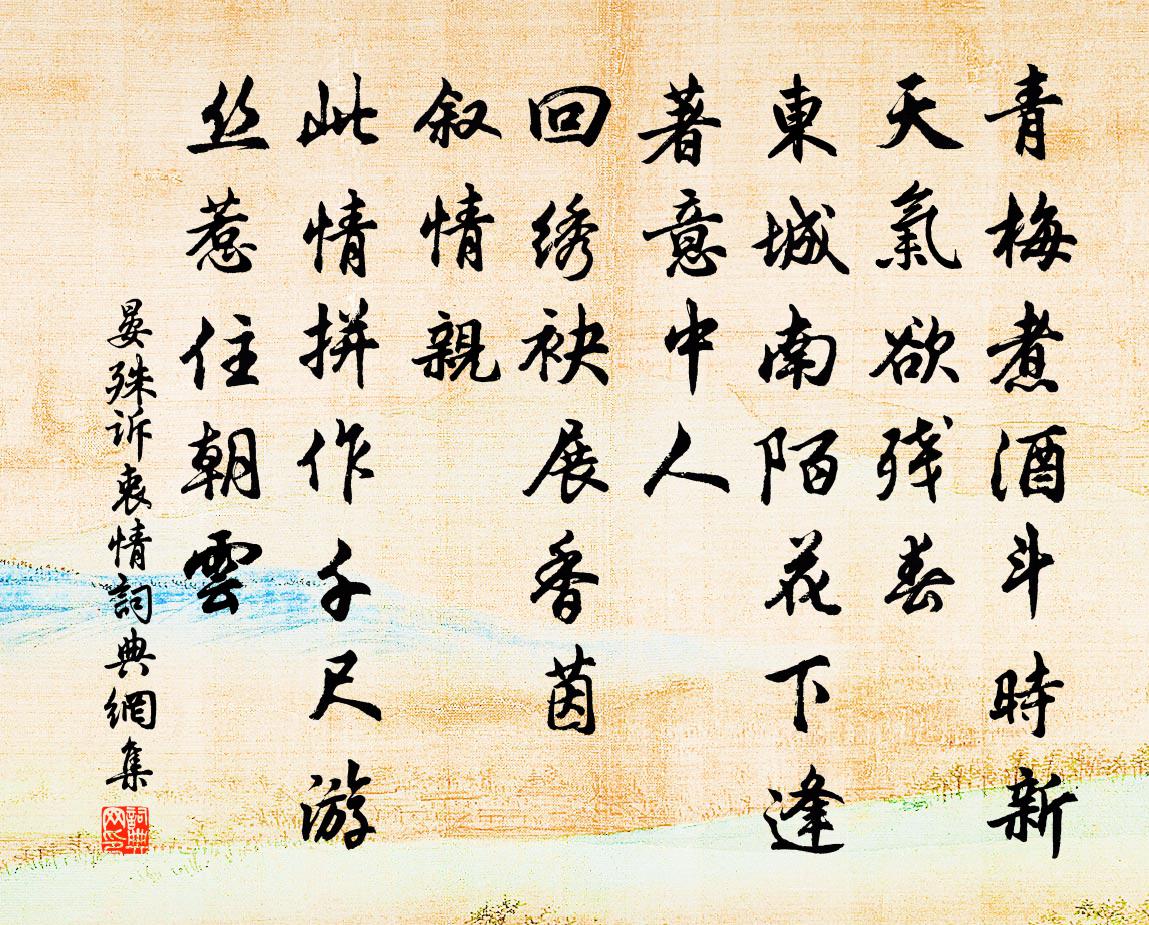 青梅煮酒斗時新
天氣欲残春
東城南陌花下逢
著意中人
回绣袂展香茵
叙情親
此情拼作千尺游
丝惹住朝雲
晏殊诉衷情詞典網集
詞典網印